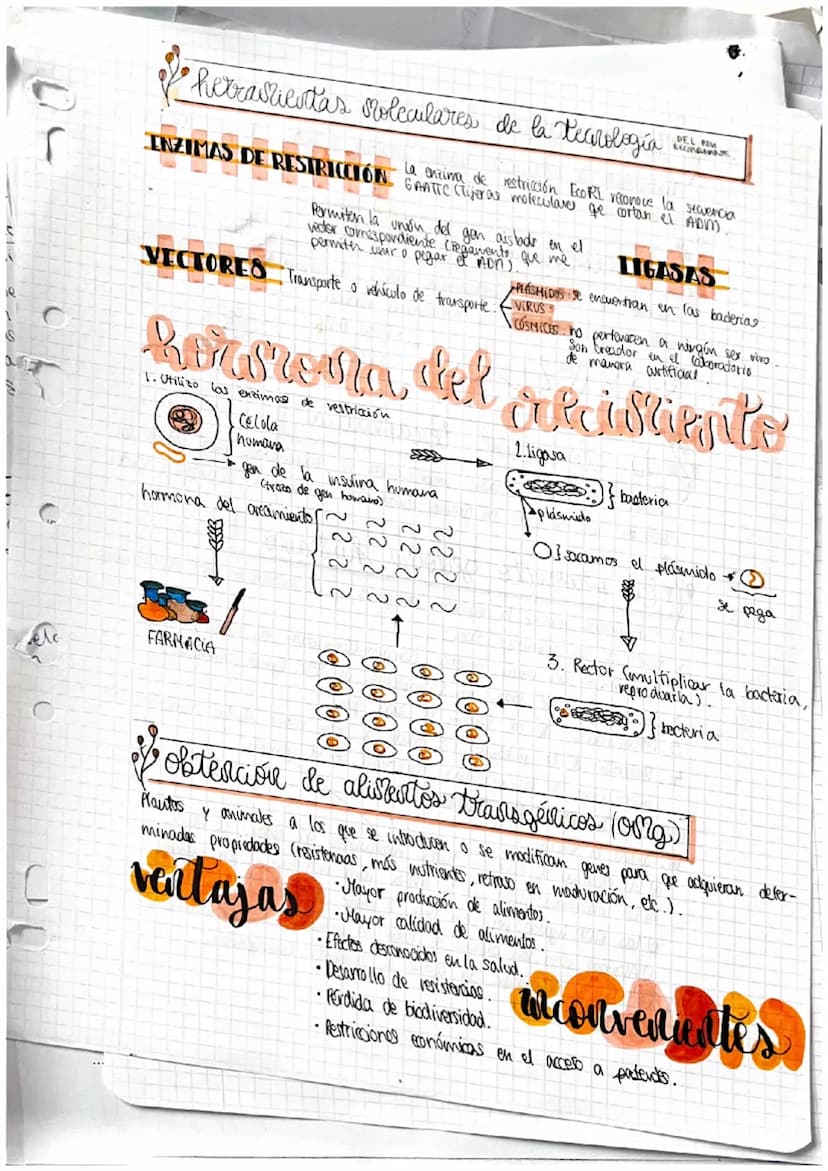 herramientas moleculares de la tecnología DEL ADN RECOMBINANTE.
ENZIMAS DE RESTRICCIÓN La enzima de restricción EcoRI reconoce la secuencia
GAATTC (Tijeras moleculares qe cortan el ADN).
Permiten la unión del gen aislado en el
vector correspondiente (Pegamento que me
permite unir o pegar el ADN).
LIGASAS
VECTORES Transporte o vehículo de transporte.
PLÁSMIDOS: se encuentran en las bacterias
VIRUS:
CÓSMICOS: no pertenecen a ningún ser vivo.
Son creador en el laboratorio
de manera artificial.
hormona del crecimiento
1. Utilizo las enzimas de restricción
Célula
humana
gen de la insulina humana
(trozo de gen humano)
2. Ligasa
} bacteria
plásmido
} sacamos el plásmido
se pega
3. Rector (multiplicar la bacteria,
reproducirla).
} bacteria
hormona del crecimiento
FARMACIA
obtención de alimentos transgénicos (OMg)
Plantas y animales a los que se introducen o se modifican genes para qe adquieran deter-
minadas propiedades (resistencias, más nutrientes, retraso en maduración, etc.).
ventajas
· Mayor producción de alimentos.
· Mayor calidad de alimentos.
· Efectos desconocidos en la salud.
· Desarrollo de resistencias.
· Pérdida de biodiversidad.
· Restricciones económicas en el acceso a patentes.
inconvenientes